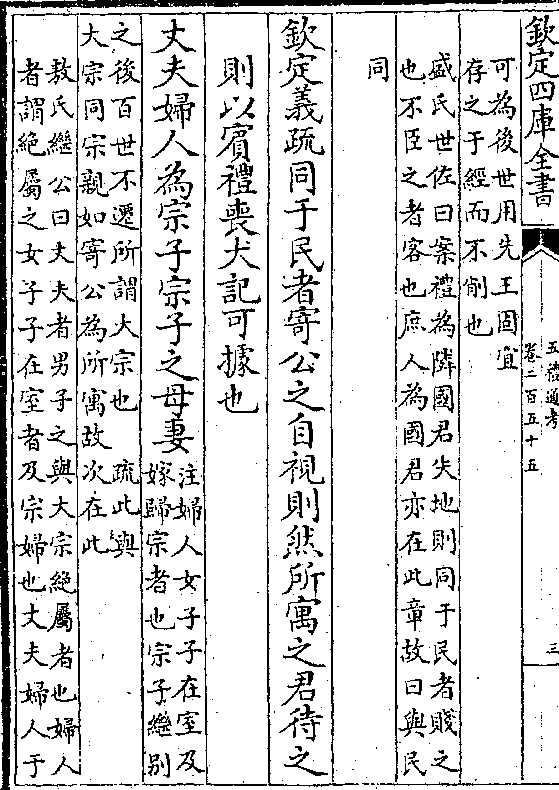 欽定四庫全書
五禮通考
卷二百五十五
三
可為後世用先王固宜
存之于經而不削也
盛氏世佐曰案禮為隣國君失地則同于民者賤之
也不臣之者客也庶人為國君亦在此章故曰與民
同
欽定義疏同于民者寄公之自視則然所寓之君待之
則以賓禮喪大記可據也
丈夫婦人為宗子宗子之母妻
注婦人女子子在室及
嫁歸宗者也宗子繼别
之後百世不遷所謂大宗也 疏此與
大宗同宗親如寄公為所寓故次在此
敖氏繼公曰丈夫者男子之與大宗絶屬者也婦人
者謂絶屬之女子子在室者及宗婦也丈夫婦人于